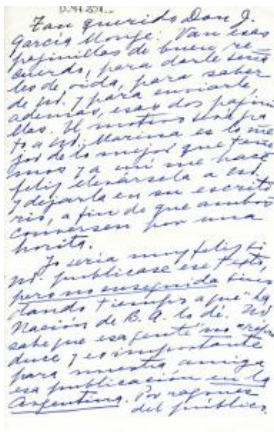 Tan querido Don J.
García Monge. Van esas
pajinillas de buen re-
cuerdo, para darle seña
les de vida, para saber
de Ud. y para enviarle
además, esas dos pajini
llas. El
to a Ud. Marina es lo me
jor de lo mejor que tene
mos y a mí me hace
feliz llevársela a esa
y dejarla en su escrito
rio, a fin de que ambos
conversen por una
horita.
Yo sería muy feliz si
Ud. publicase ese texto,
pero no enseguida sino
dando tiempo a que "La
Nación" de B. A. lo dé. Ud.
sabe que esa gente no repro
duce y es importante
para nuestra amiga
esa publicación en la
Argentina. Por razones
del público